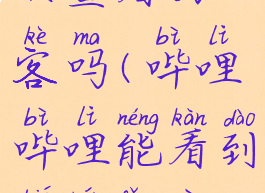 kè ma bì lì
客吗(哔哩
bì lì néng kàn dào
哔哩能看到